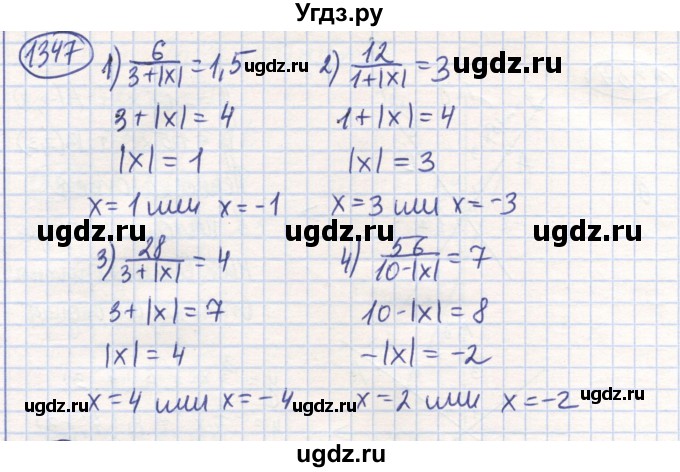 Угдз.ру
1347
1) 6/(3+|x|) = 1,5 ugdz.ru 2) 12/(1+|x|) = 3 ugdz.ru
3+|x| = 4 1+|x| = 4
|x| = 1 |x| = 3
x = 1 или x = -1 x = 3 или x = -3
ugdz.ru ugdz.ru
3) 28/(3+|x|) = 4 4) 56/(10-|x|) = 7
3+|x| = 7 10-|x| = 8
|x| = 4 -|x| = -2
ugdz.ru x = 4 или x = -4 ugdz.ru x = 2 или x = -2 ugdz.ru
ugdz.ru